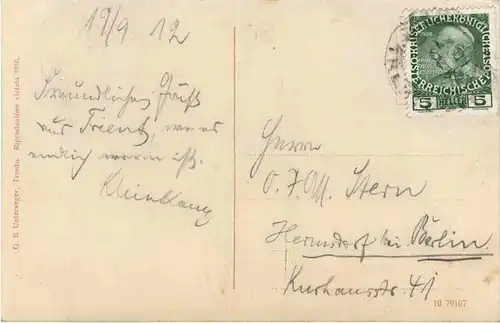 19/9 12
Freundlichen Gruß
aus Trient, wo es
endlich warm ist.
G. B. Unterveger, Trento. Riproduzione vietata 1910.
KAISERLICHE KÖNIGLICHE
ÖSTERREICHISCHE POST
5 HELLER 5
Herrn
Stern
Hermsdorf bei Berlin
Kurhausstr 41
10 79107